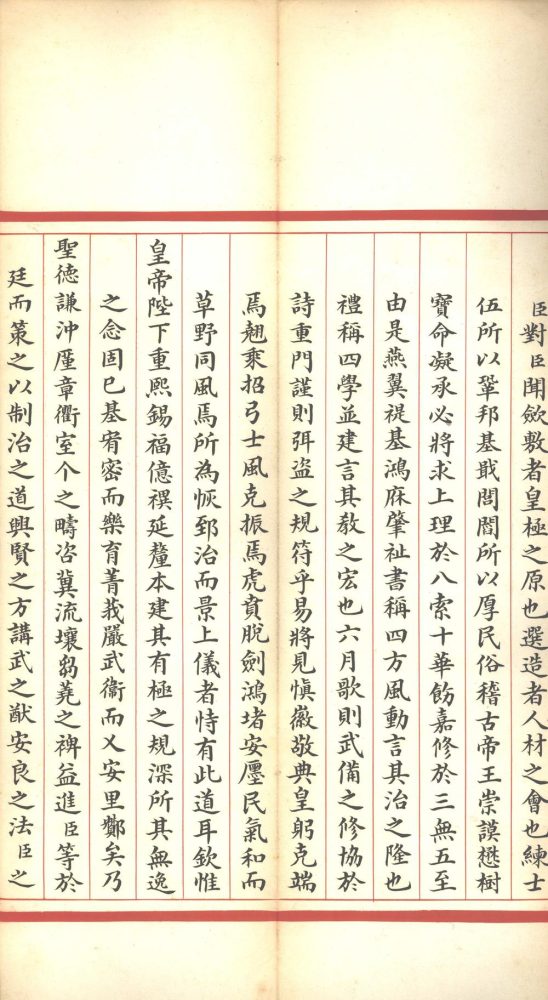 臣對臣聞斂敷者皇極之原也選造者人材之會也練士
伍所以鞏邦基戢閭閻所以厚民俗稽古帝王崇謨懋樹
寶命凝承必將求上理於八索十華飭嘉修於三無五至
由是燕翼禔基鴻庥肇祉書稱四方風動言其治之隆也
禮稱四學並建言其教之宏也六月歌則武備之修協於
詩重門謹則弭盜之規符乎易將見慎徽敬典皇躬克端
焉翹乘招弓士風克振焉虎賁脫劍鴻堵安廛民氣和而
草野同風焉所為恢郅治而景上儀者恃有此道耳欽惟
皇帝陛下重熙錫福億禩延釐本建其有極之規深所其無逸
之念固已基宥密而樂育菁莪嚴武衛而乂安里酇矣乃
聖德謙沖厪章衢室个之疇咨冀流壤芻蕘之裨益進臣等於
廷而策之以制治之道興賢之方講武之猷安良之法臣之